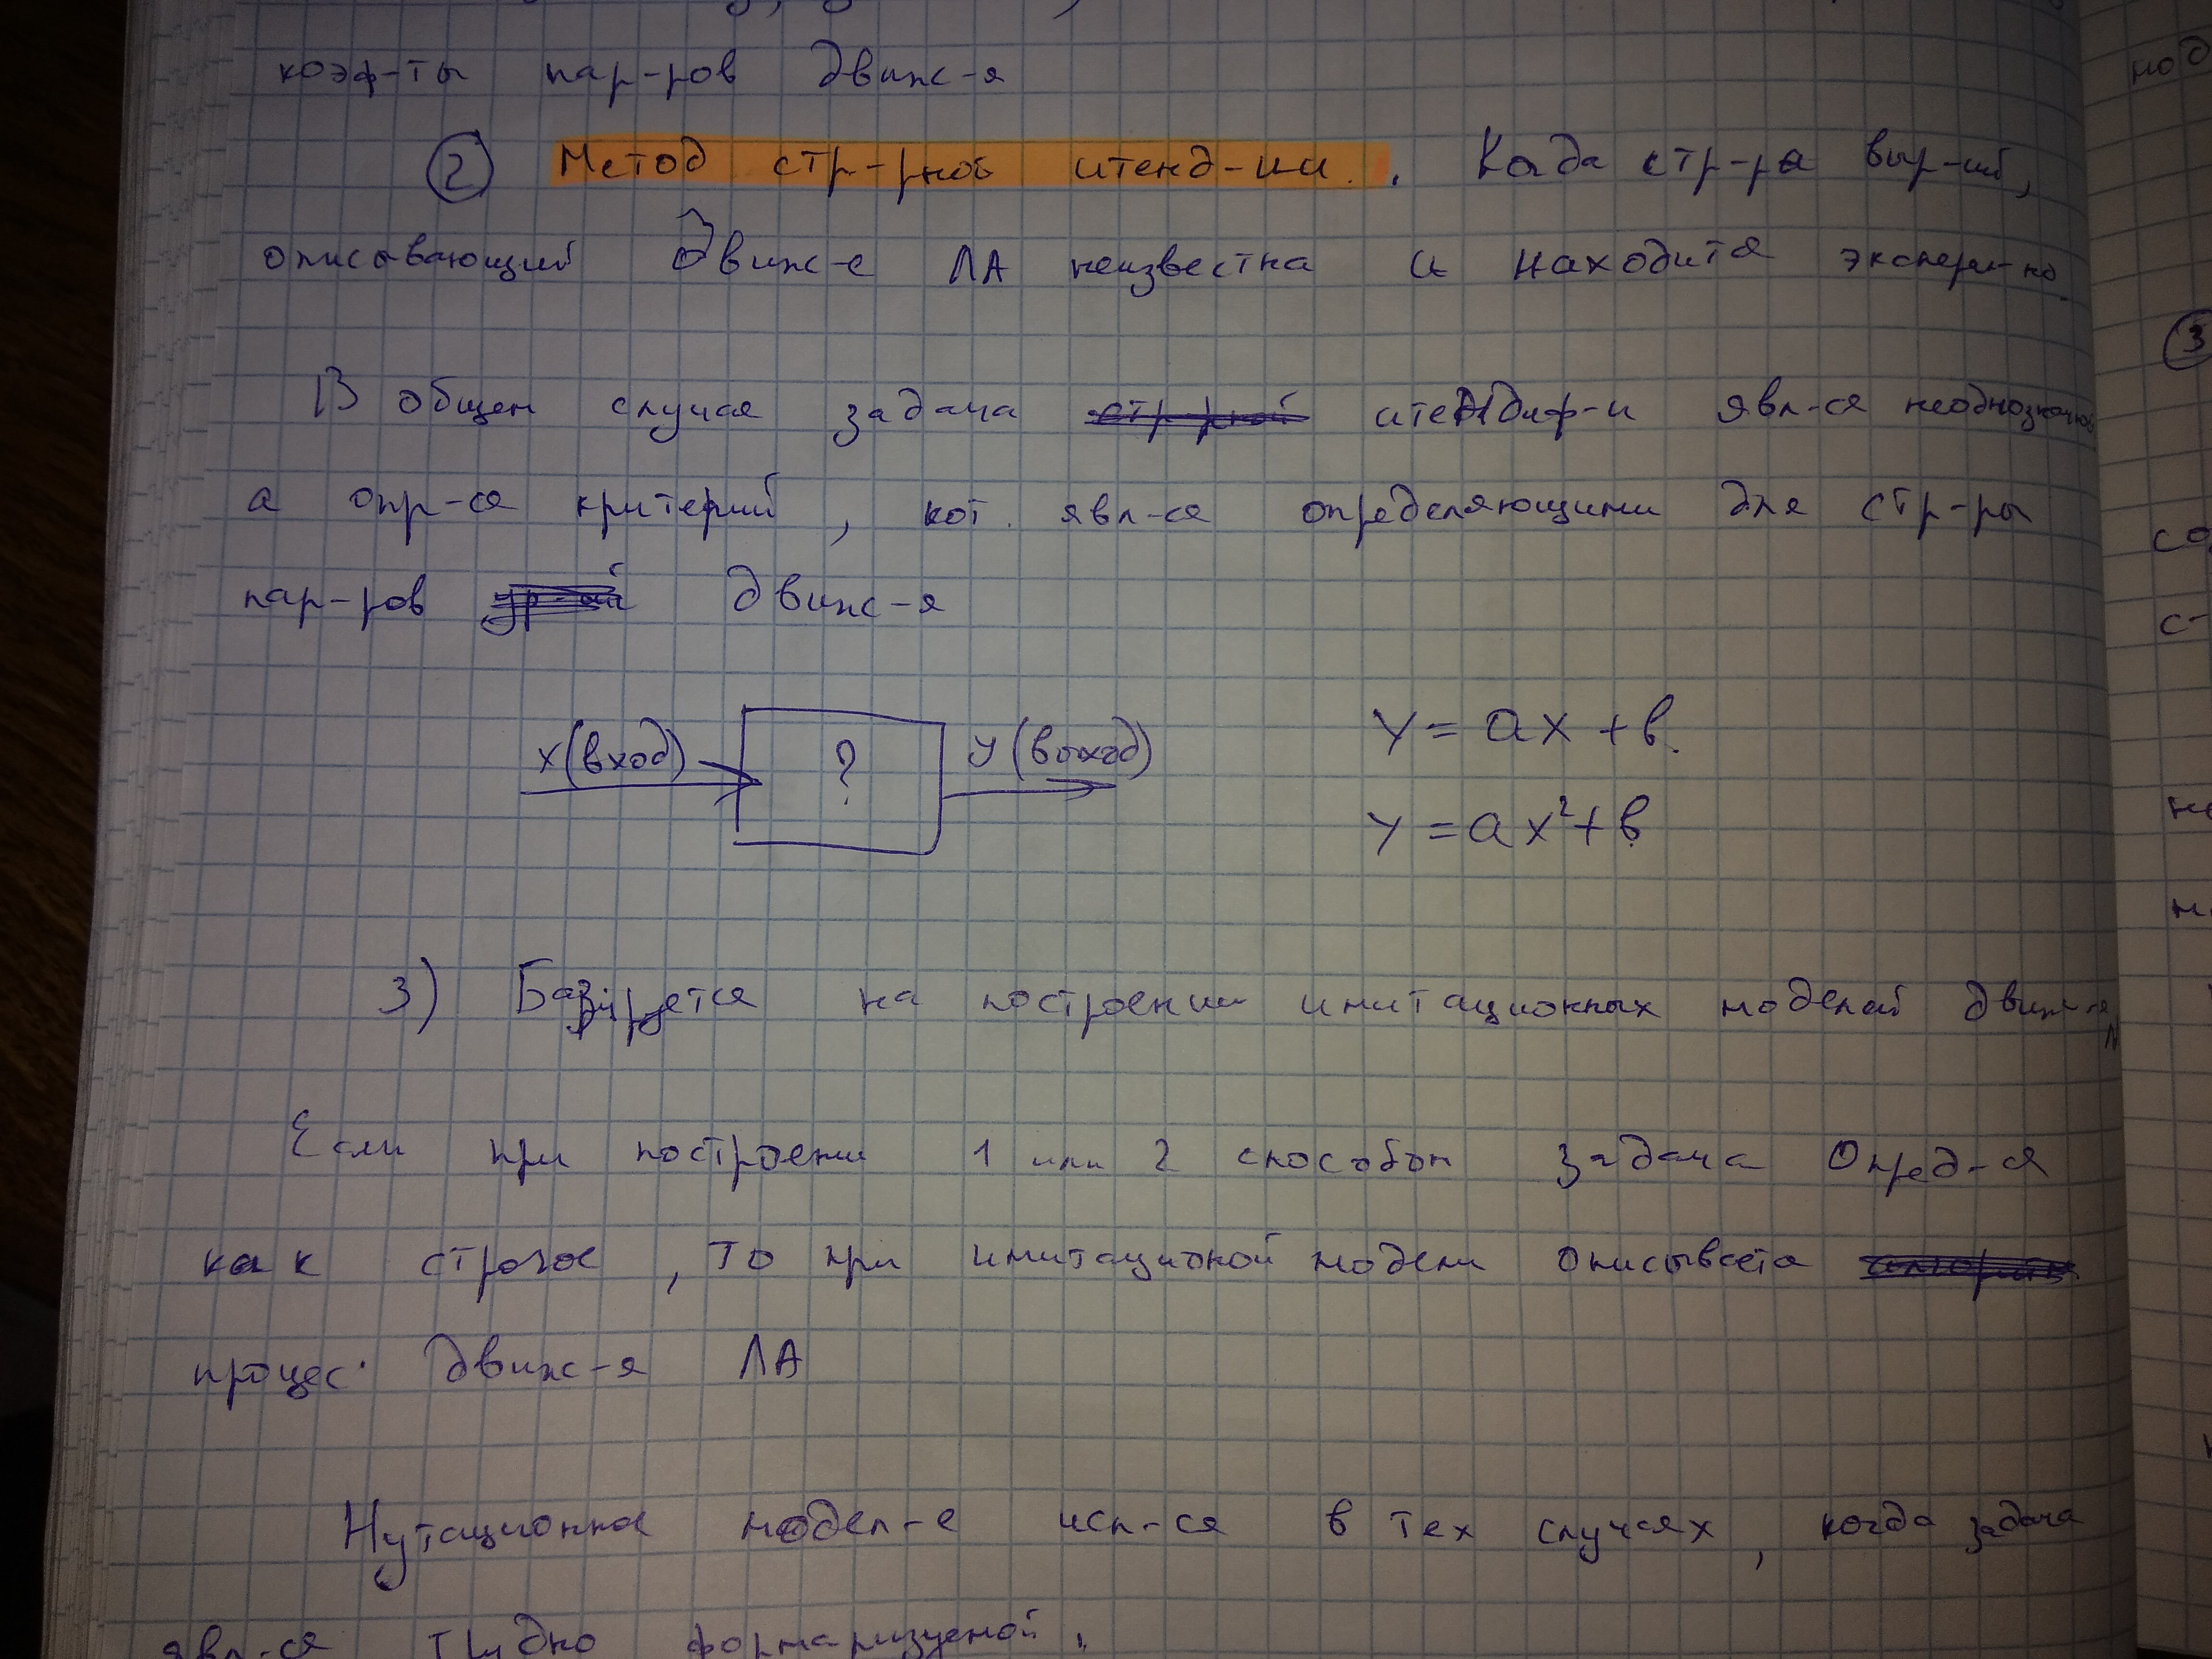 коэф-ты пар-ров движ-я
② Метод стр-рной итенд-ии. Кода стр-ра выр-ий,
описывающий движ-е ЛА неизвестна и находится экспери-но
В общем случае задача итендиф-и явл-ся неоднозначной
а опр-ся критерий, кот. явл-ся определяющими для стр-ры
пар-ров движ-я
x(вход) ? y(выход)
y = ax + b.
y = ax²+b
3) Базируется на построении имитационных моделей движ-я
Если при построении 1 или 2 способом задача опред-ся
как строгое, то при имитационной модели описывается
процес движ-я ЛА
Нутационное модел-е исп-ся в тех случаях, когда задача
явл-ся трудно формаризуемой.
под
③
со
с-
не